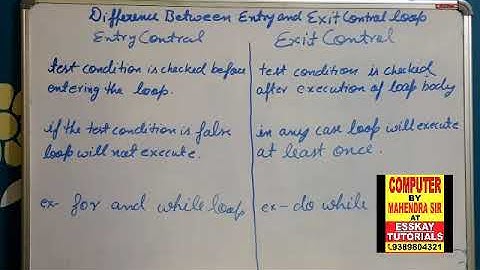 Difference Between Entry and Exit Control loop
Entry Control
test condition is checked before
entering the loop.
if the test condition is false
loop will not execute.
ex- for and while loop
Exit Control
test condition is checked
after execution of loop body
in any case loop will execute
at least once.
ex- do while
COMPUTER
BY
MAHENDRA SIR
AT
ESSKAY
TUTORIALS
9389804321